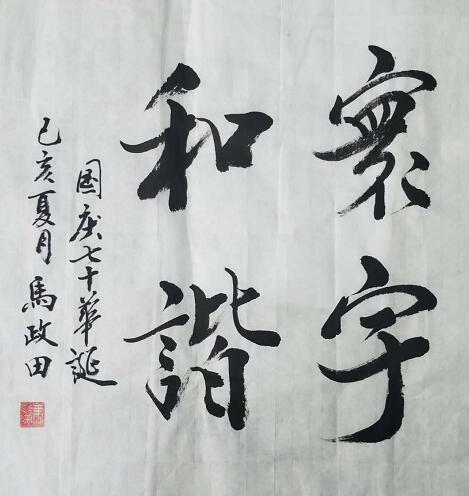 寰宇
和諧
國庆七十華誕
己亥夏月馬政田